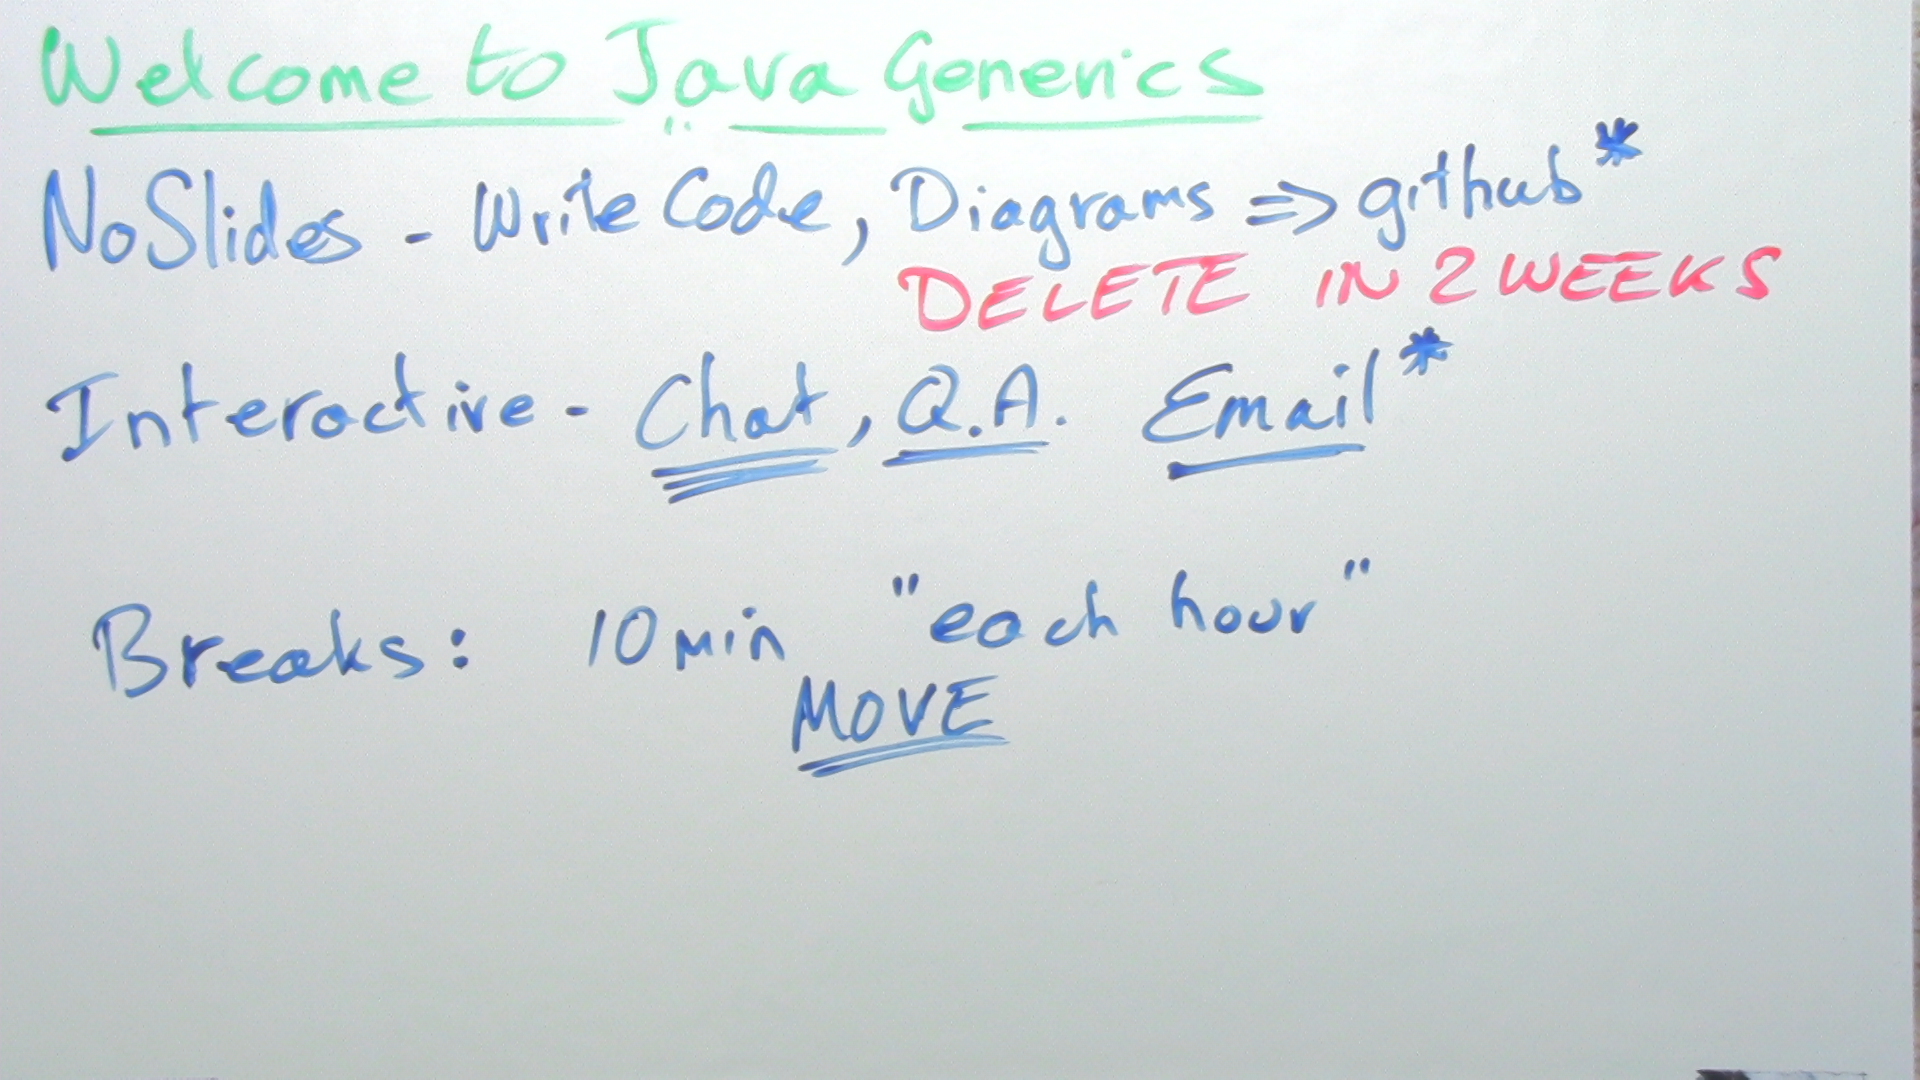 Welcome to Java Generics
No Slides - Write Code, Diagrams => github*
DELETE IN 2 WEEKS
Interactive - Chat, Q.A. Email*
Breaks: 10 min "each hour"
MOVE